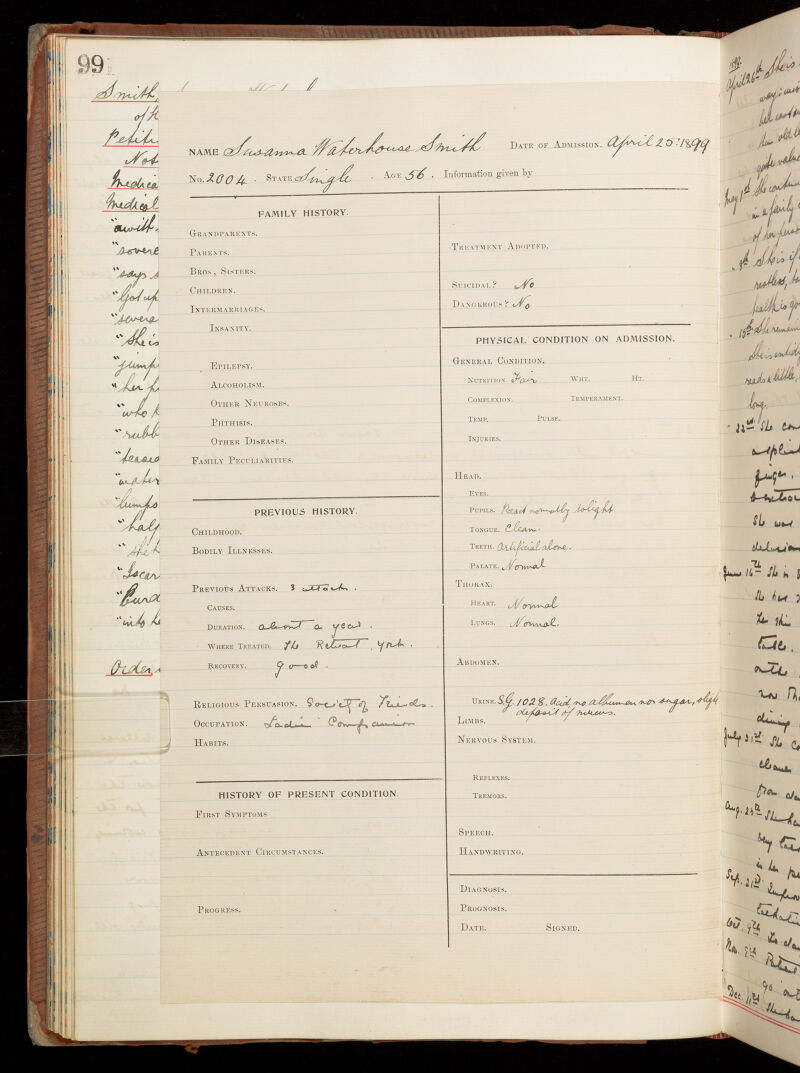 99
Smith,
of H
Petiti
Not
Medica
Medical
"awith
"severe
"says s
"Got up
"severa
"She is
"jump
"her h
"who h
"rubb
"teased
"water
"lumps
"half
"she h
"Scar
"Burd
"into h
Order
NAME Susanna Waterhouse Smith DATE OF ADMISSION. April 25: 1899
No. 2004. STATE Single. AGE 56. Information given by
FAMILY HISTORY.
GRANDPARENTS.
PARENTS.
BROS., SISTERS.
CHILDREN.
INTERMARRIAGES.
INSANITY.
EPILEPSY.
ALCOHOLISM.
OTHER NEUROSES.
PHTHISIS.
OTHER DISEASES.
FAMILY PECULIARITIES.
PREVIOUS HISTORY.
CHILDHOOD.
BODILY ILLNESSES.
PREVIOUS ATTACKS. 3 attacks.
CAUSES.
DURATION. about a year.
WHERE TREATED. The Retreat, York.
RECOVERY. good.
RELIGIOUS PERSUASION. Society of Friends.
OCCUPATION. Ladies' Companion
HABITS.
HISTORY OF PRESENT CONDITION
FIRST SYMPTOMS
ANTECEDENT CIRCUMSTANCES.
PROGRESS.
TREATMENT ADOPTED.
SUICIDAL? No
DANGEROUS? No
PHYSICAL CONDITION ON ADMISSION.
GENERAL CONDITION.
NUTRITION. Fair WHT. HT.
COMPLEXION. TEMPERAMENT.
TEMP. PULSE.
INJURIES.
HEAD.
EYES.
PUPILS. React normally to light
TONGUE. Clean.
TEETH. Artificial alone.
PALATE. Normal
THORAX.
HEART. Normal
LUNGS. Normal.
ABDOMEN.
URINE. S.G. 1028. Acid, no albumen nor sugar, slight
deposit of mucus.
LIMBS.
NERVOUS SYSTEM.
REFLEXES.
TREMORS.
SPEECH.
HANDWRITING.
DIAGNOSIS.
PROGNOSIS.
DATE. SIGNED.
April 26th She is
her
her old
quite
May 1st She continu
in a fairly
of her perso
8th She is
restless,
health is go
15th She remain
She is entirely
reads a little,
long.
22nd She com
a
finger.
She was
delusion
June 16th She is
She has
her
table.
now
dining
July 31st She
cleaner
from
Aug. 25th She ha
in her
Sep. 21st Improv
Oct. 9th
Nov. 9th Patient
go out
Dec. 11th She ha